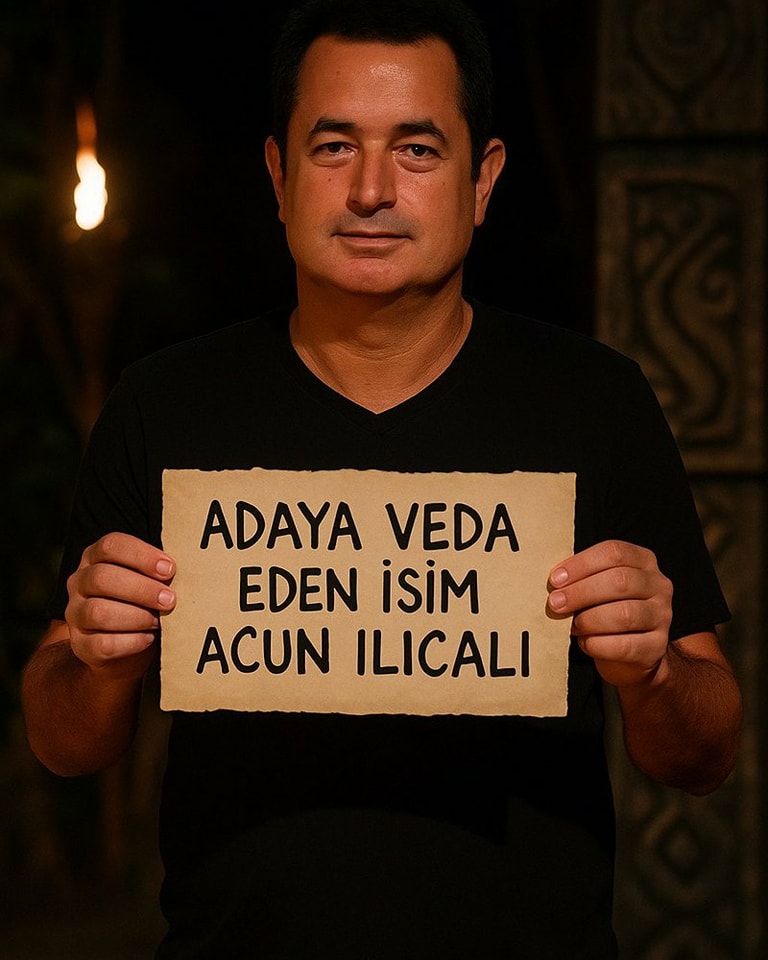 ADAYA VEDA
EDEN İSİM
ACUN ILICALI